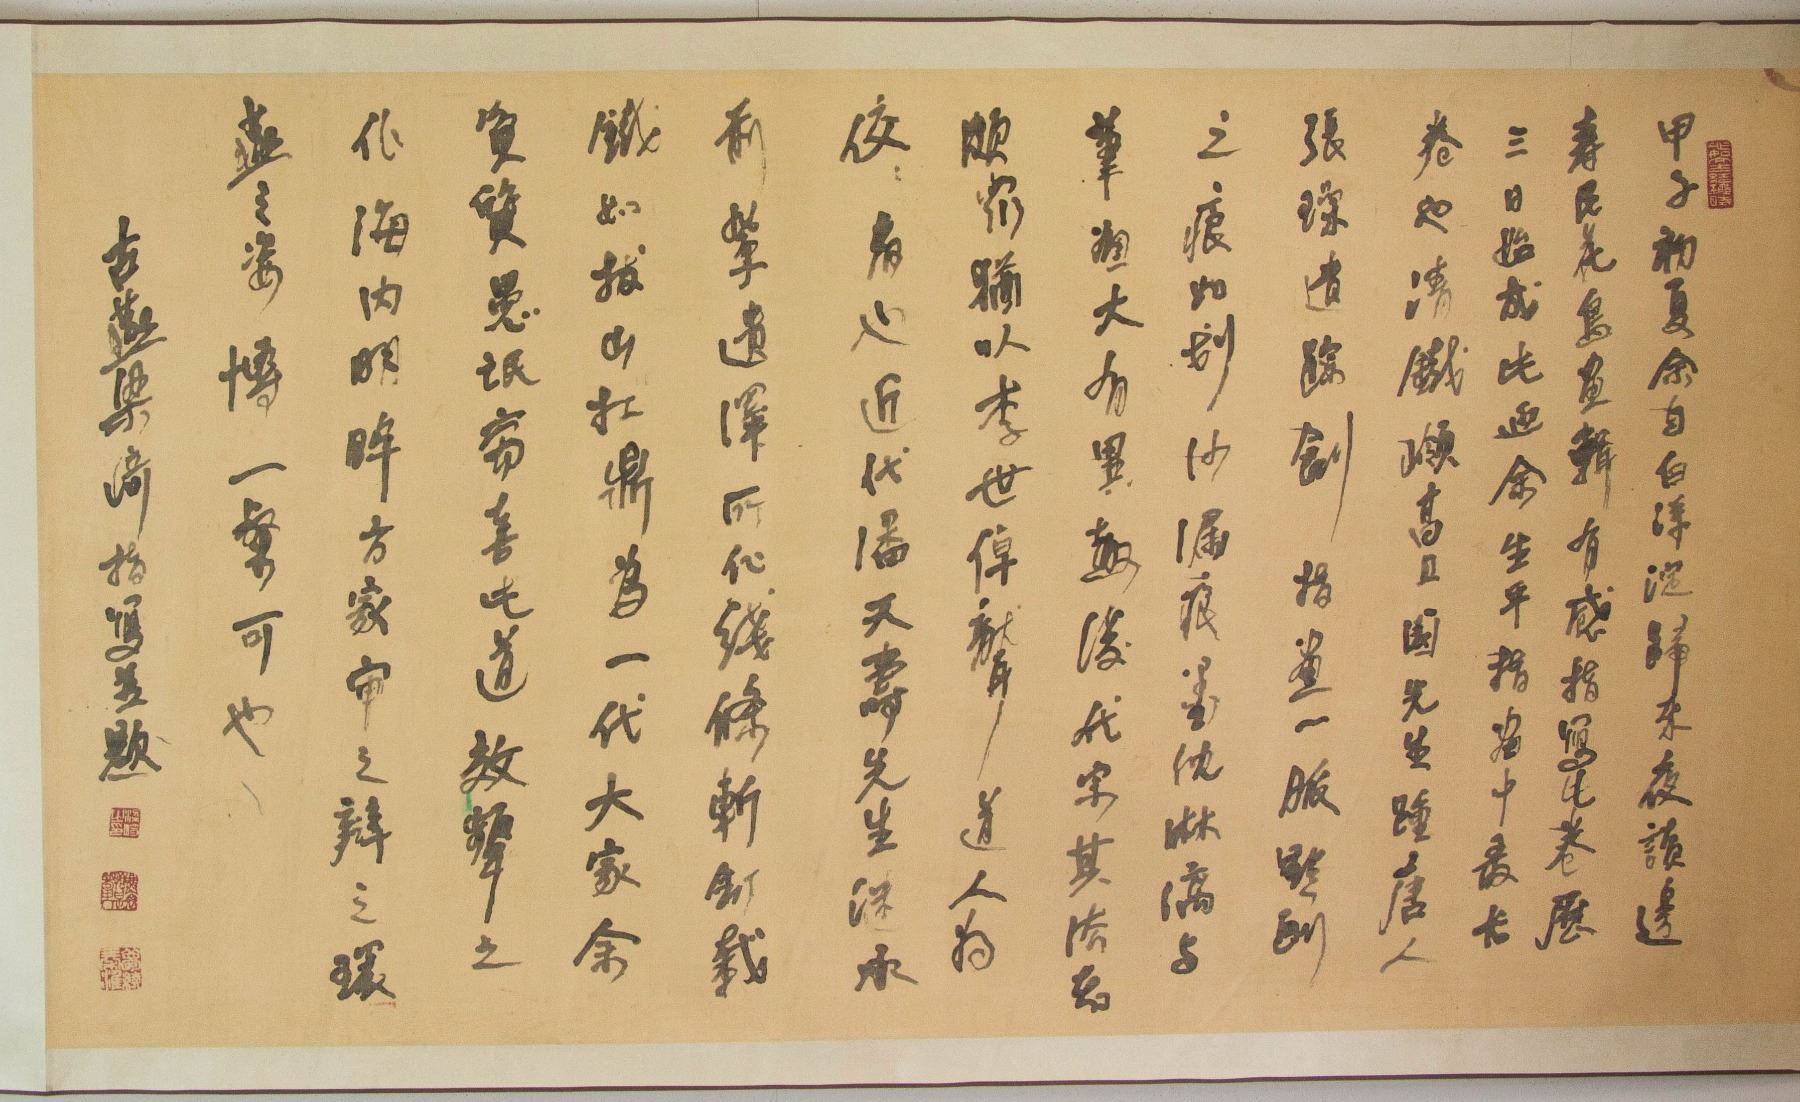 甲子初夏余自白洋淀歸來夜讀邊
壽民花鳥畫輯有感指寫此卷歷
三日始成此迺余生平指畫中最长
卷也清鐵嶺高且園先生踵唐人
張璪遺踪創指畫一脈
之痕如划沙漏痕墨沈淋漓与
筆趣大有異趣後代宗其法者
頗眾猶以李世倬 道人為
佼佼者也近代潘天壽先生继承
前輩遺澤所作綫條斬釘截
鐵如拔山扛鼎為一代大家余
資質愚氓竊喜此道效颦之
作海内明眸方家审之辩之
之姿博一粲可也
古燕梁崎指寫並題